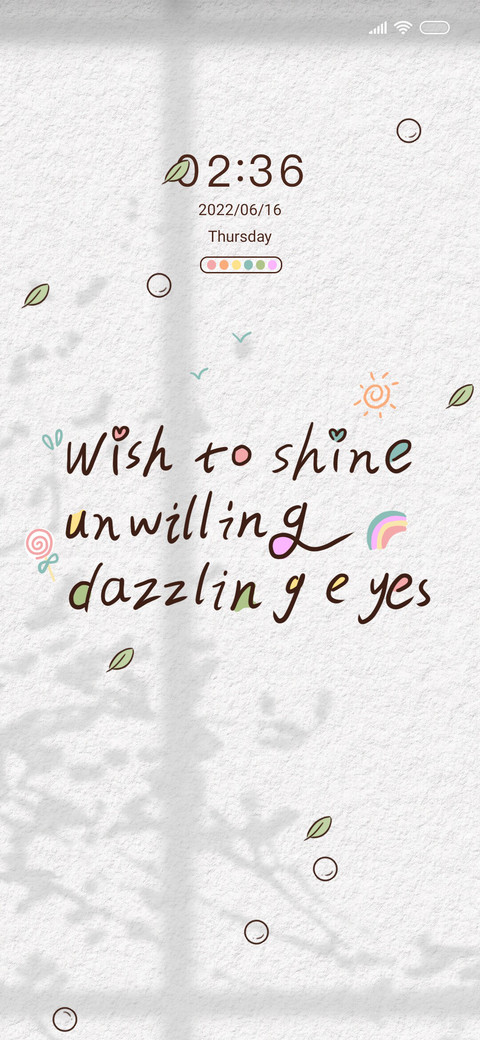 02:36
2022/06/16
Thursday
Wish to shine
unwilling
dazzling eyes